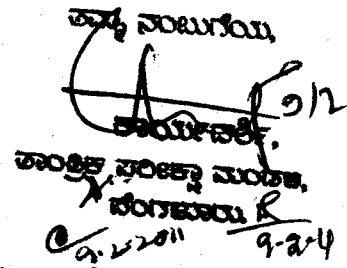 ತಮ್ಮ ನಂಬುಗೆಯ,
9/2
ಕಾರ್ಯದರ್ಶಿ,
ತಾಂತ್ರಿಕ ಪರೀಕ್ಷಾ ಮಂಡಳಿ,
ಬೆಂಗಳೂರು
9-2-2011